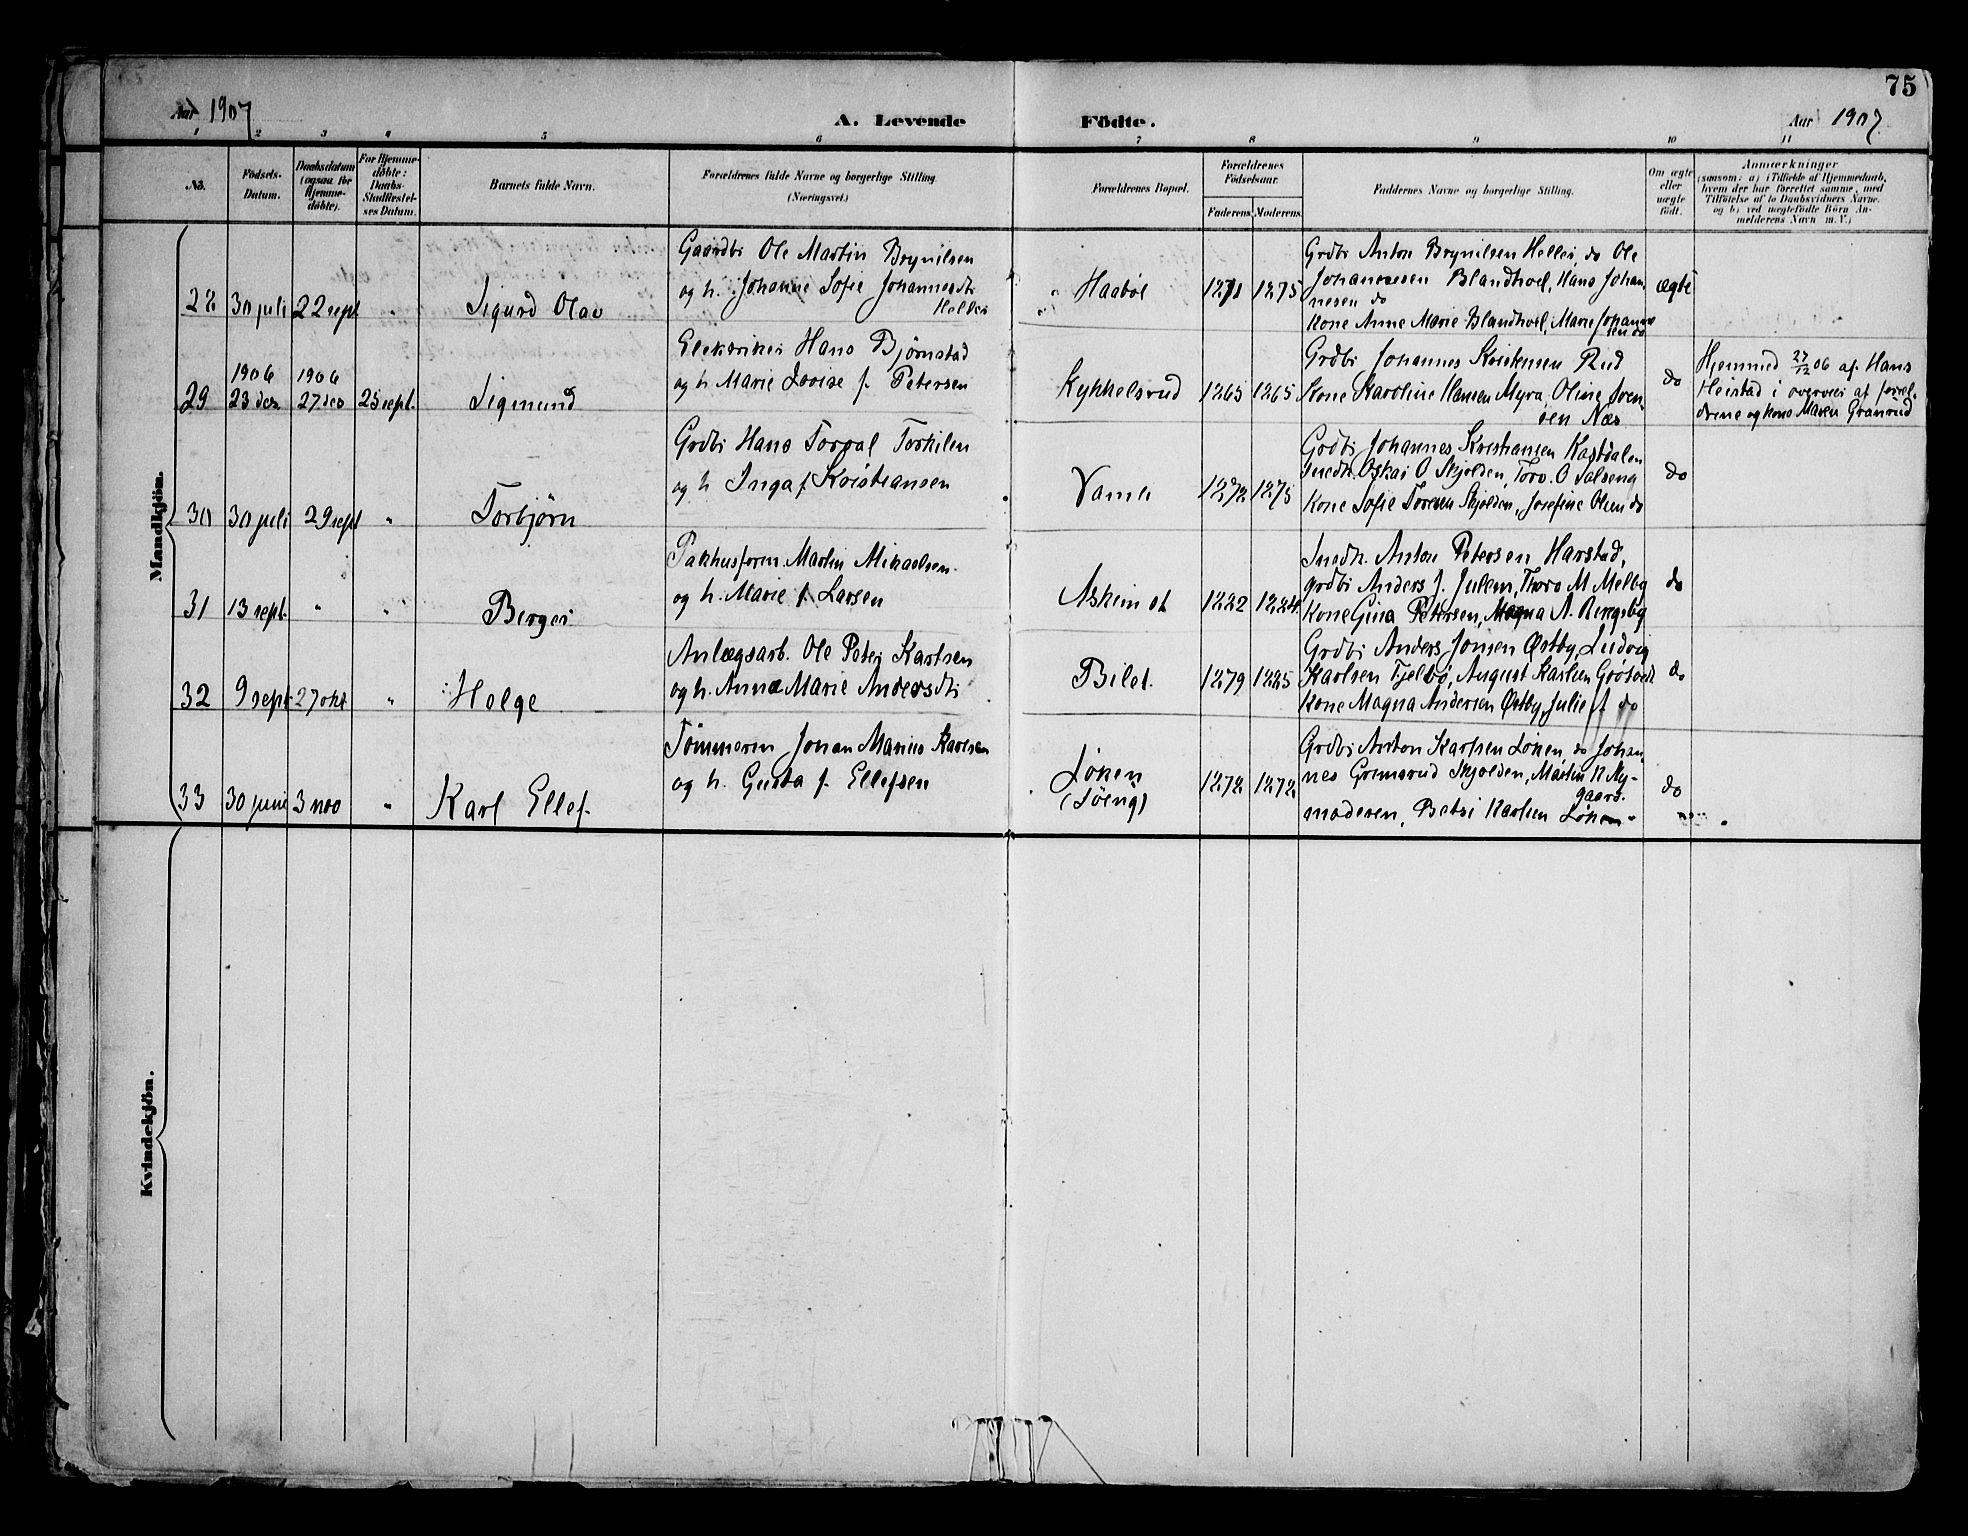 75
Aar 1907
A. Levende Fødte.
Aar 1907
1 2 3 4 5 6 7 8 9 10 11
No.
Fødsels-Datum.
Daabsdatum (ogsaa for Hjemme-døbte).
For Hjemme-døbte: Daabs-Stadfæstel-ses Datum.
Barnets fulde Navn.
Forældrenes fulde Navne og borgerlige Stilling (Næringsvei.)
Forældrenes Bopæl.
Forældrenes Fødselsaar.
Faderens Moderens
Faddernes Navne og borgerlige Stilling.
Om ægte eller uægte født.
Anmærkninger
(saasom: a) i Tilfælde af Hjemmedaab,
hvem der har forrettet samme, med
Tilføielse af to Daabsvidners Navne,
og b) ved uægtefødte Børn An-
melderens Navn m. V.)
Mandkjön.
28 30 juli 22 sept. " Sigurd Olav
Gaardbr Ole Martin Brynilsen
og h. Johanne Sofie Johannesdtr
Heller
Haabøl 1871 1875
Grdbr Anton Brynilsen Heller, do Ole
Johannesen Blandhoel, Hans Johan-
nesen do
Kone Anne Marie Blandhoel, Marie Johanne
sen do
ægte
29 1906 23 des 1906 27 des 25 sept. Sigmund
Elektriker Hans Bjørnstad
og h. Marie Lovise f. Petersen
Kykkelsrud 1865 1865
Grdbr Johannes Kristensen Rud
Kone Karoline Hansen Myra, Oline Sven-
sen Næs
do
Hjemmed 27/12 06 af Hans
Heistad i overvær af forel-
drene og kone Maren Granrud
30 30 juli 29 sept " Torbjørn
Grdbr Hans Torval Torkilen
og h Inga f. Kristiansen
Vamer 1872 1875
Grdbr Johannes Kristiansen Kastdalen
Snedk. Oskar O Skjolden, Torv. O Solseng
Kone Sofie Toresen Skjolden, Josefine Olsen do
do
31 13 sept. " " Berger
Pakhusform. Martin Mikaelsen
og h. Marie f. Larsen
Askim st 1882 1884
Snedk. Anton Petersen Harstad,
grdbr Anders J. Julem, Thoro M Melby
Kone Gina Petersen, Magna A. Ringsby
do
32 9 sept 27 okt " Helge
Anlægsarb. Ole Peter Karlsen
og h. Anna Marie Andersdtr
Bilet 1879 1885
Grdbr Anders Jonsen Østby, Ludvig
Karlsen Fjelbø, August Karlsen Grøtvedt
Kone Magna Andersen Østby, Julie f. do
do
33 30 juni 3 nov " Karl Ellef.
Tømmerm Johan Marius Karlsen
og h. Gusta f. Ellefsen
Løken
(Søeng) 1872 1872
Grdbr Anton Karlsen Løken, do Johan-
nes Grimsrud Skjolden, Martin K Ny-
gaard.
moderen, Betsi Karlsen Løken
do
Kvindekjön.